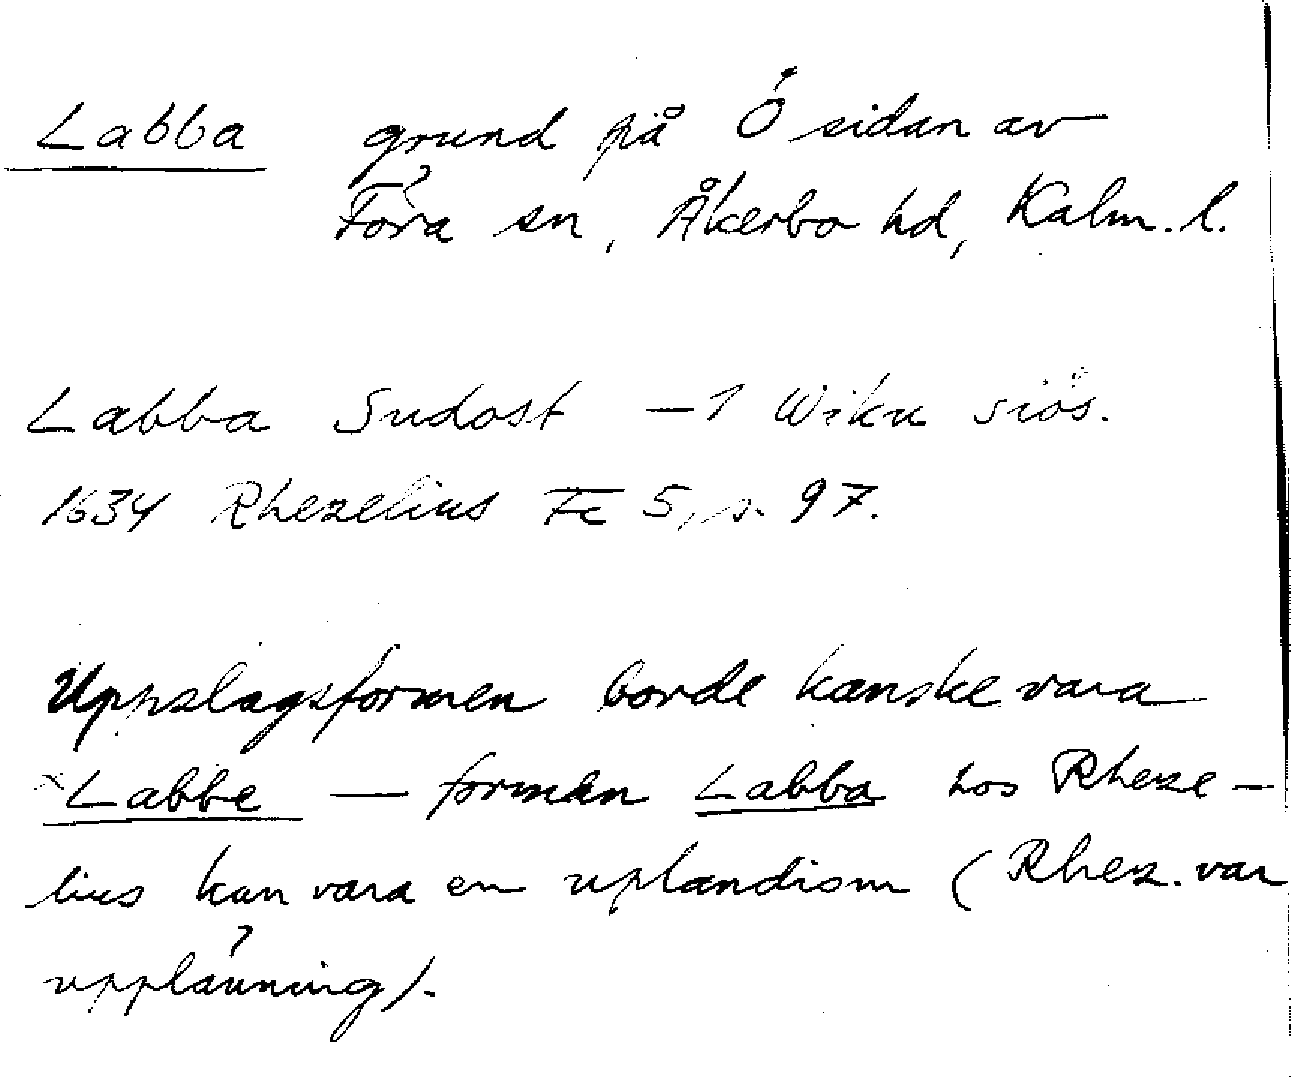 Labba grund på Ö sidan av
Föra sn, Åkerbo hd, Kalm. l.
Labba Sudost – 1 Wiku siös.
1634 Rhezelius Fc 5, s. 97.
Uppslagsformen borde kanske vara
×Labbe – formen Labba hos Rheze-
lius kan vara en uplandism (Rhez. var
upplänning).